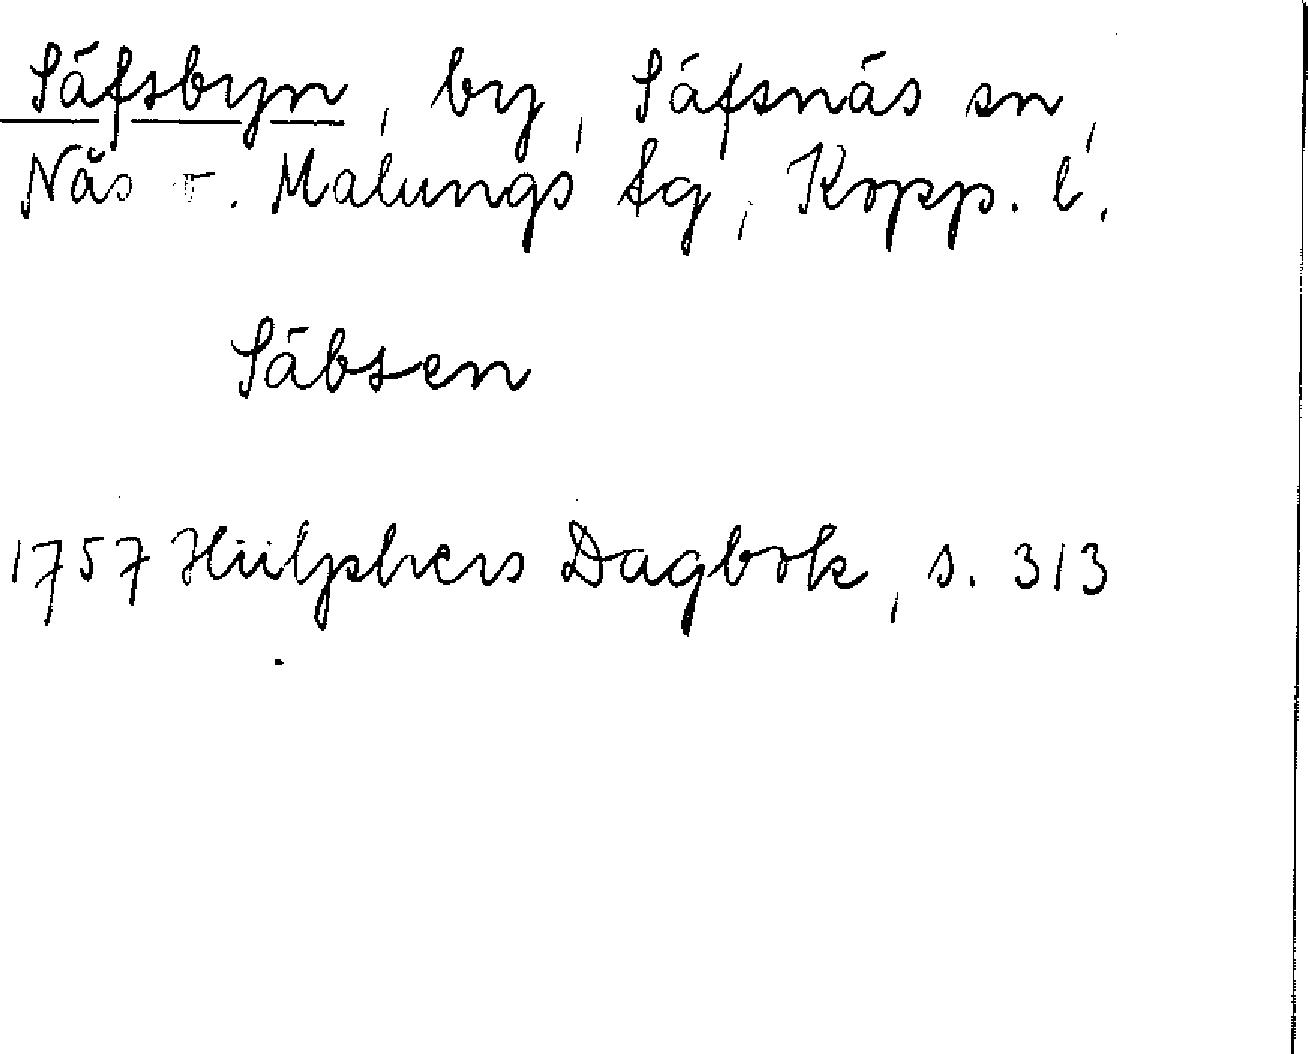 Säfsbyn, by, Säfsnäs sn,
Näs o. Malungs tg, Kopp. l.
Säbsen
1757 Hülphers Dagbok, s. 313